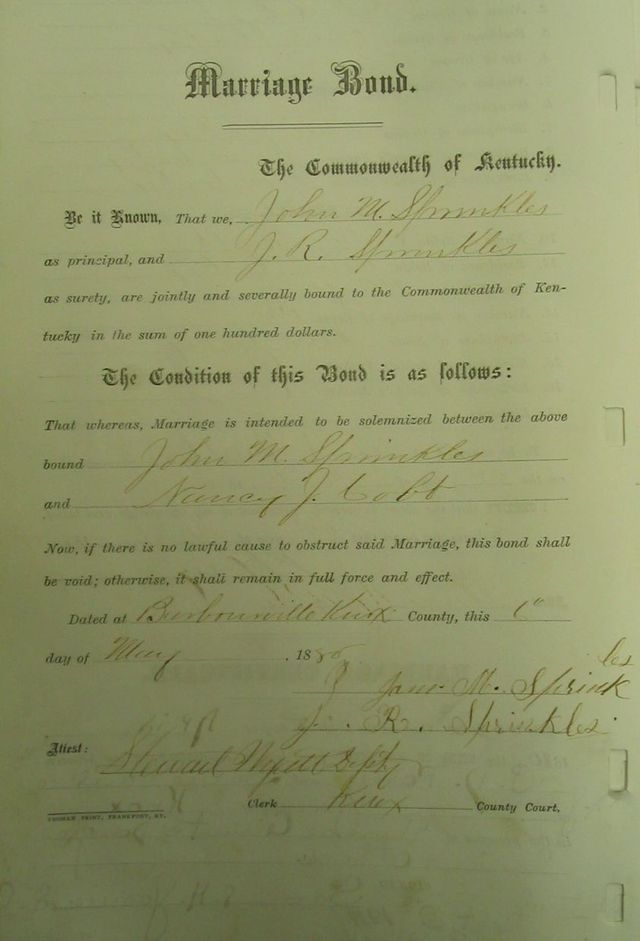 Marriage Bond.
The Commonwealth of Kentucky.
Be it Known, That we, John M. Sprinkles
as principal, and J. R. Sprinkles
as surety, are jointly and severally bound to the Commonwealth of Ken-
tucky in the sum of one hundred dollars.
The Condition of this Bond is as follows:
That whereas, Marriage is intended to be solemnized between the above
bound John M. Sprinkles
and Nancy J. Cobb
Now, if there is no lawful cause to obstruct said Marriage, this bond shall
be void; otherwise, it shall remain in full force and effect.
Dated at Barbourville Knox County, this
day of May 188
M. Sprinkles
J. R. Sprinkles
Attest:
Stewart Wyett Dpty
Clerk Knox County Court.
PRINT, FRANKFORT, KY.